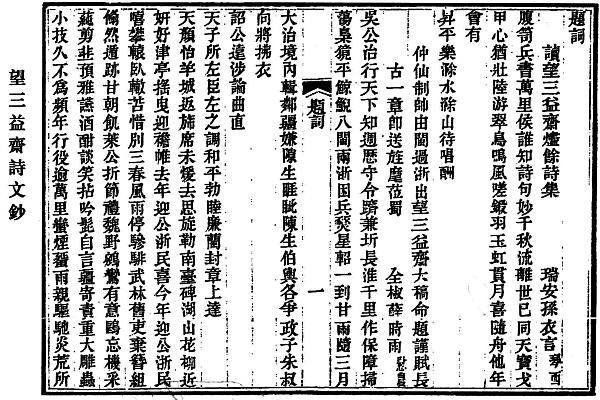 題詞
讀望三益齋燼餘詩集　瑞安孫衣言琴西
腹笥兵書萬里侯誰知詩句妙千秋流離世已同天寶戈
甲心猶壯陸游翠鳥鳴風嗟鎩羽玉虹貫月喜隨舟他年
會有
昇平樂滁水滁山待唱酬
仲仙制帥由閩過浙出望三益齋大稿命題謹賦長
古一章卽送旌麾莅蜀　全椒薛時雨慰農
吳公治行天下知遊歷守令躋兼圻長淮千里作保障掃
蕩梟獍平鯨鯢八閩兩浙困兵燹星軺一到甘雨隨三月
題詞
一
大治境內輯鄰疆嫌隙生睚眦陳生伯輿各爭政子朱叔
向將拂衣
詔公遠涉論曲直
天子所左臣左之調和平勃睦廉藺封章上達
天顏怡羊城返旆席未煖去思旋勒南臺碑湖山花柳近
妍好津亭搖曳迎襜帷去年迎公浙民喜今年迎公浙民
嘻攀轅臥轍苦惜別三春風雨停驂騑武林舊吏棄簪組
翛然遁跡甘朝飢萊公折節禮魏野鵷鸞有意鷗忘機采
蒓剪韭預雅讌酒酣談笑拈吟髭自言疆寄責重大雕蟲
小技久不爲頻年行役逾萬里蠻煙蜑雨親驅馳炎荒所
望三益齋詩文鈔